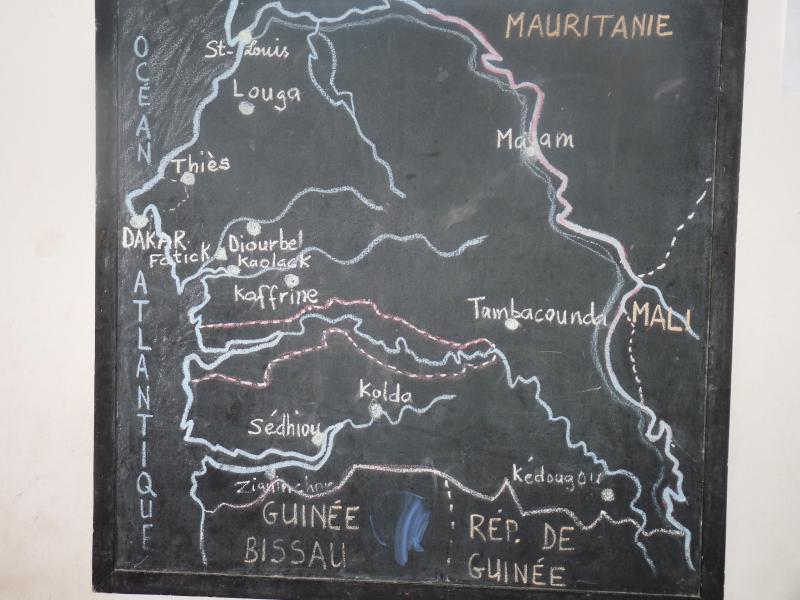 MAURITANIE
OCÉAN
St-Louis
Louga
Matam
Thiès
DAKAR
Fatick
Diourbel
Kaolack
ATLANTIQUE
Kaffrine
Tambacounda
MALI
Kolda
Sédhiou
Ziguinchor
Kédougou
GUINÉE
BISSAU
RÉP. DE
GUINÉE